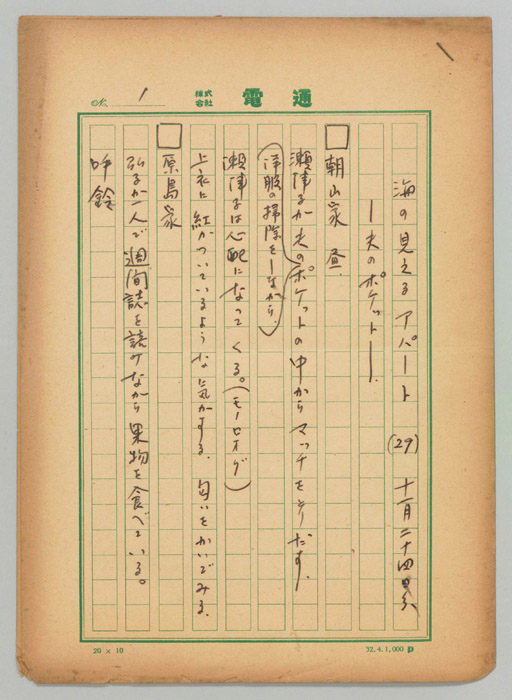 No. 1
株式会社 電通
海の見えるアパート (29) 十一月二十四日
―夫のポケット―
朝山家 昼
瀬津子が夫のポケットの中からマッチをとりだす.
(洋服の掃除をしながら.)
瀬津子は心配になってくる。(モーロオグ)
上衣に紅がついているような気がする. 匂いをかいでみる.
原島家
弘子が一人で週間誌を読みながら果物を食べている。
呼鈴
20 × 10
32.4.1,000 P